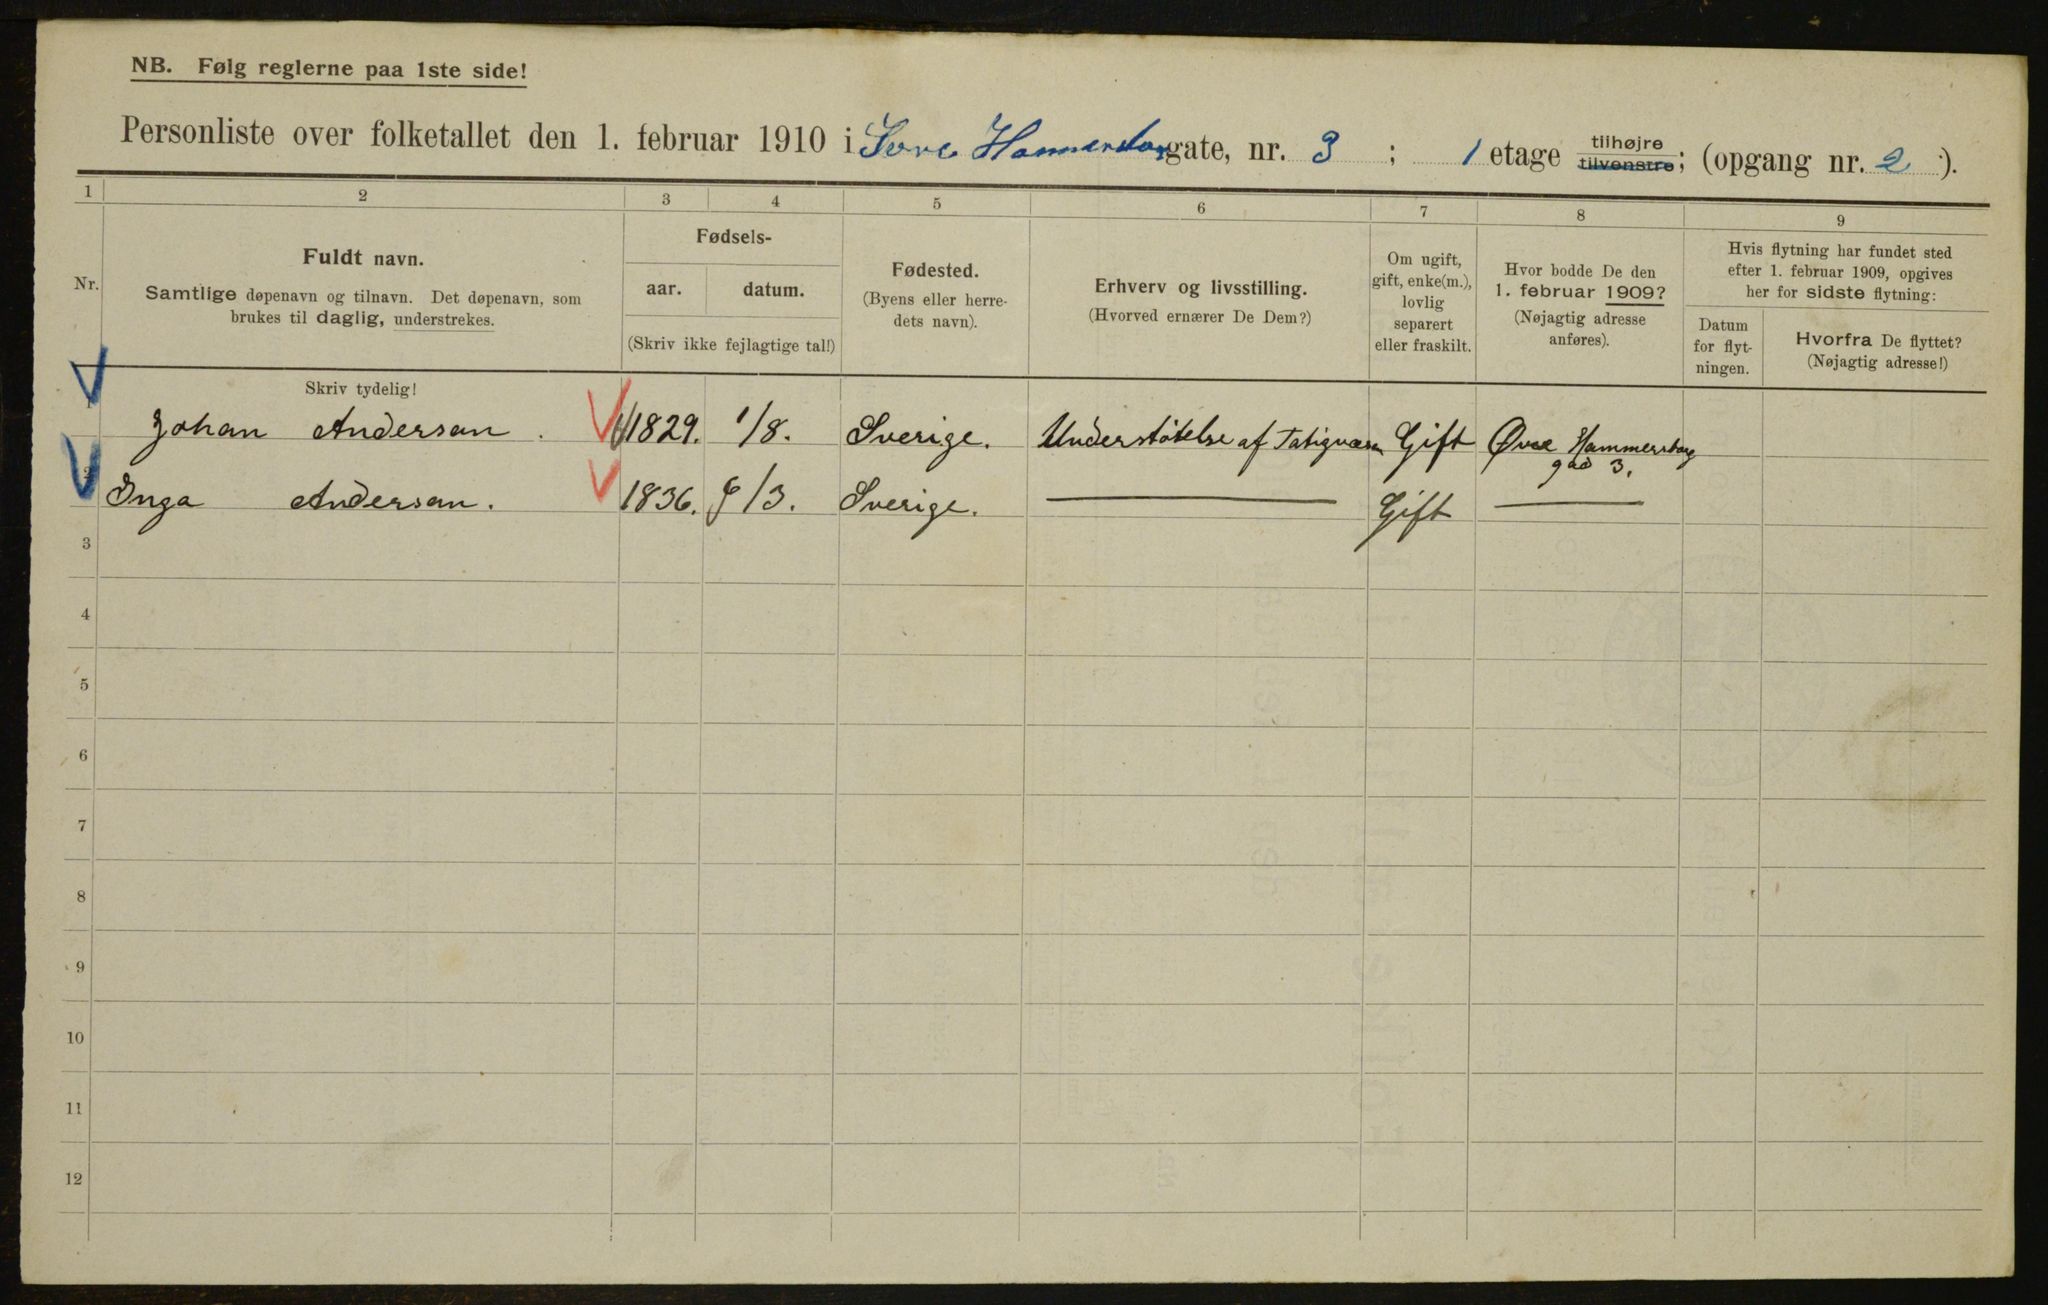 NB. Følg reglerne paa 1ste side!
Personliste over folketallet den 1. februar 1910 i Hammersborg gate, nr. 3 ; 1 etage tilhøjre tilvenstre; (opgang nr. 2 ).
1 2 3 4 5 6 7 8 9
Nr.
Fuldt navn.
Samtlige døpenavn og tilnavn. Det døpenavn, som
brukes til daglig, understrekes.
Fødsels-
aar. datum.
(Skriv ikke fejlagtige tal!)
Fødested.
(Byens eller herre-
dets navn).
Erhverv og livsstilling.
(Hvorved ernærer De Dem?)
Om ugift,
gift, enke(m.),
lovlig
separert
eller fraskilt.
Hvor bodde De den
1. februar 1909?
(Nøjagtig adresse
anføres).
Hvis flytning har fundet sted
efter 1. februar 1909, opgives
her for sidste flytning:
Datum
for flyt-
ningen.
Hvorfra De flyttet?
(Nøjagtig adresse!)
Skriv tydelig!
1 Johan Andersan. 1829. 1/8. Sverige. Understøtelse af Gift Øvre Hammersborg
gad 3.
2 Inga Andersan. 1836. /3. Sverige. — Gift —
3
4
5
6
7
8
9
10
11
12